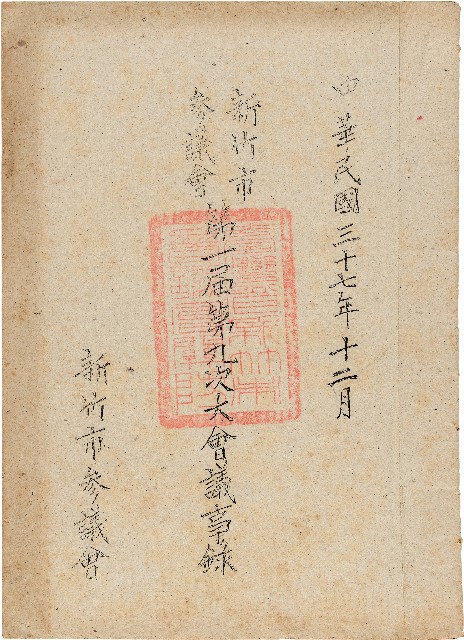 中華民國三十七年十二月
新竹市
參議會
第一屆第九次大會議事錄
新竹市參議會